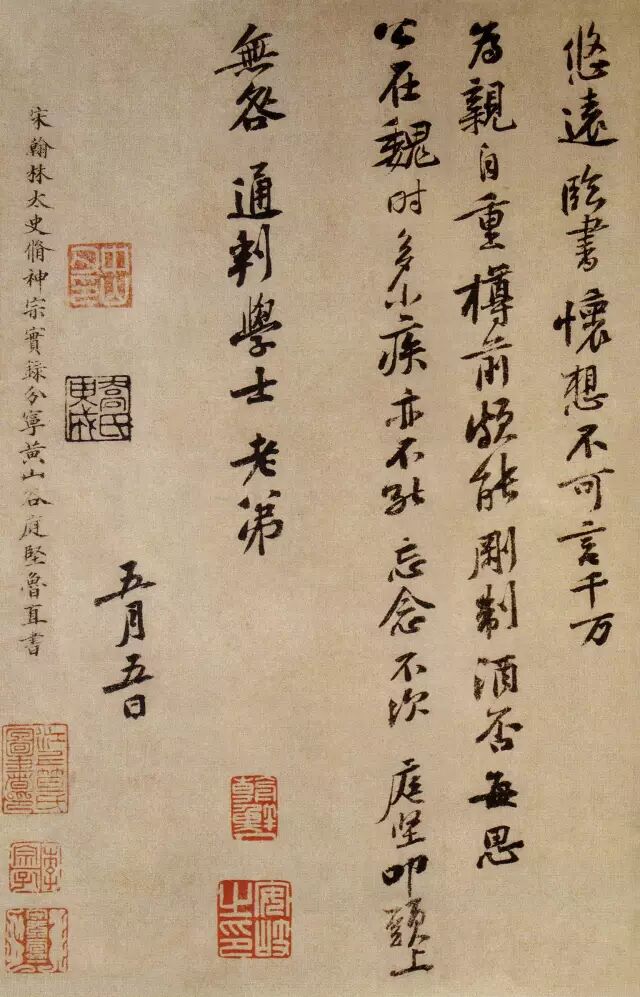 悠遠臨書懷想不可言千万
為親自重樽前頗能剛制酒否每思
公在魏时多小疾亦不能忘念不次 庭坚叩頭上
無咎 通判學士老弟
五月五日
宋翰林太史脩神宗實錄分寧黃山谷庭堅魯直書
安岐之印